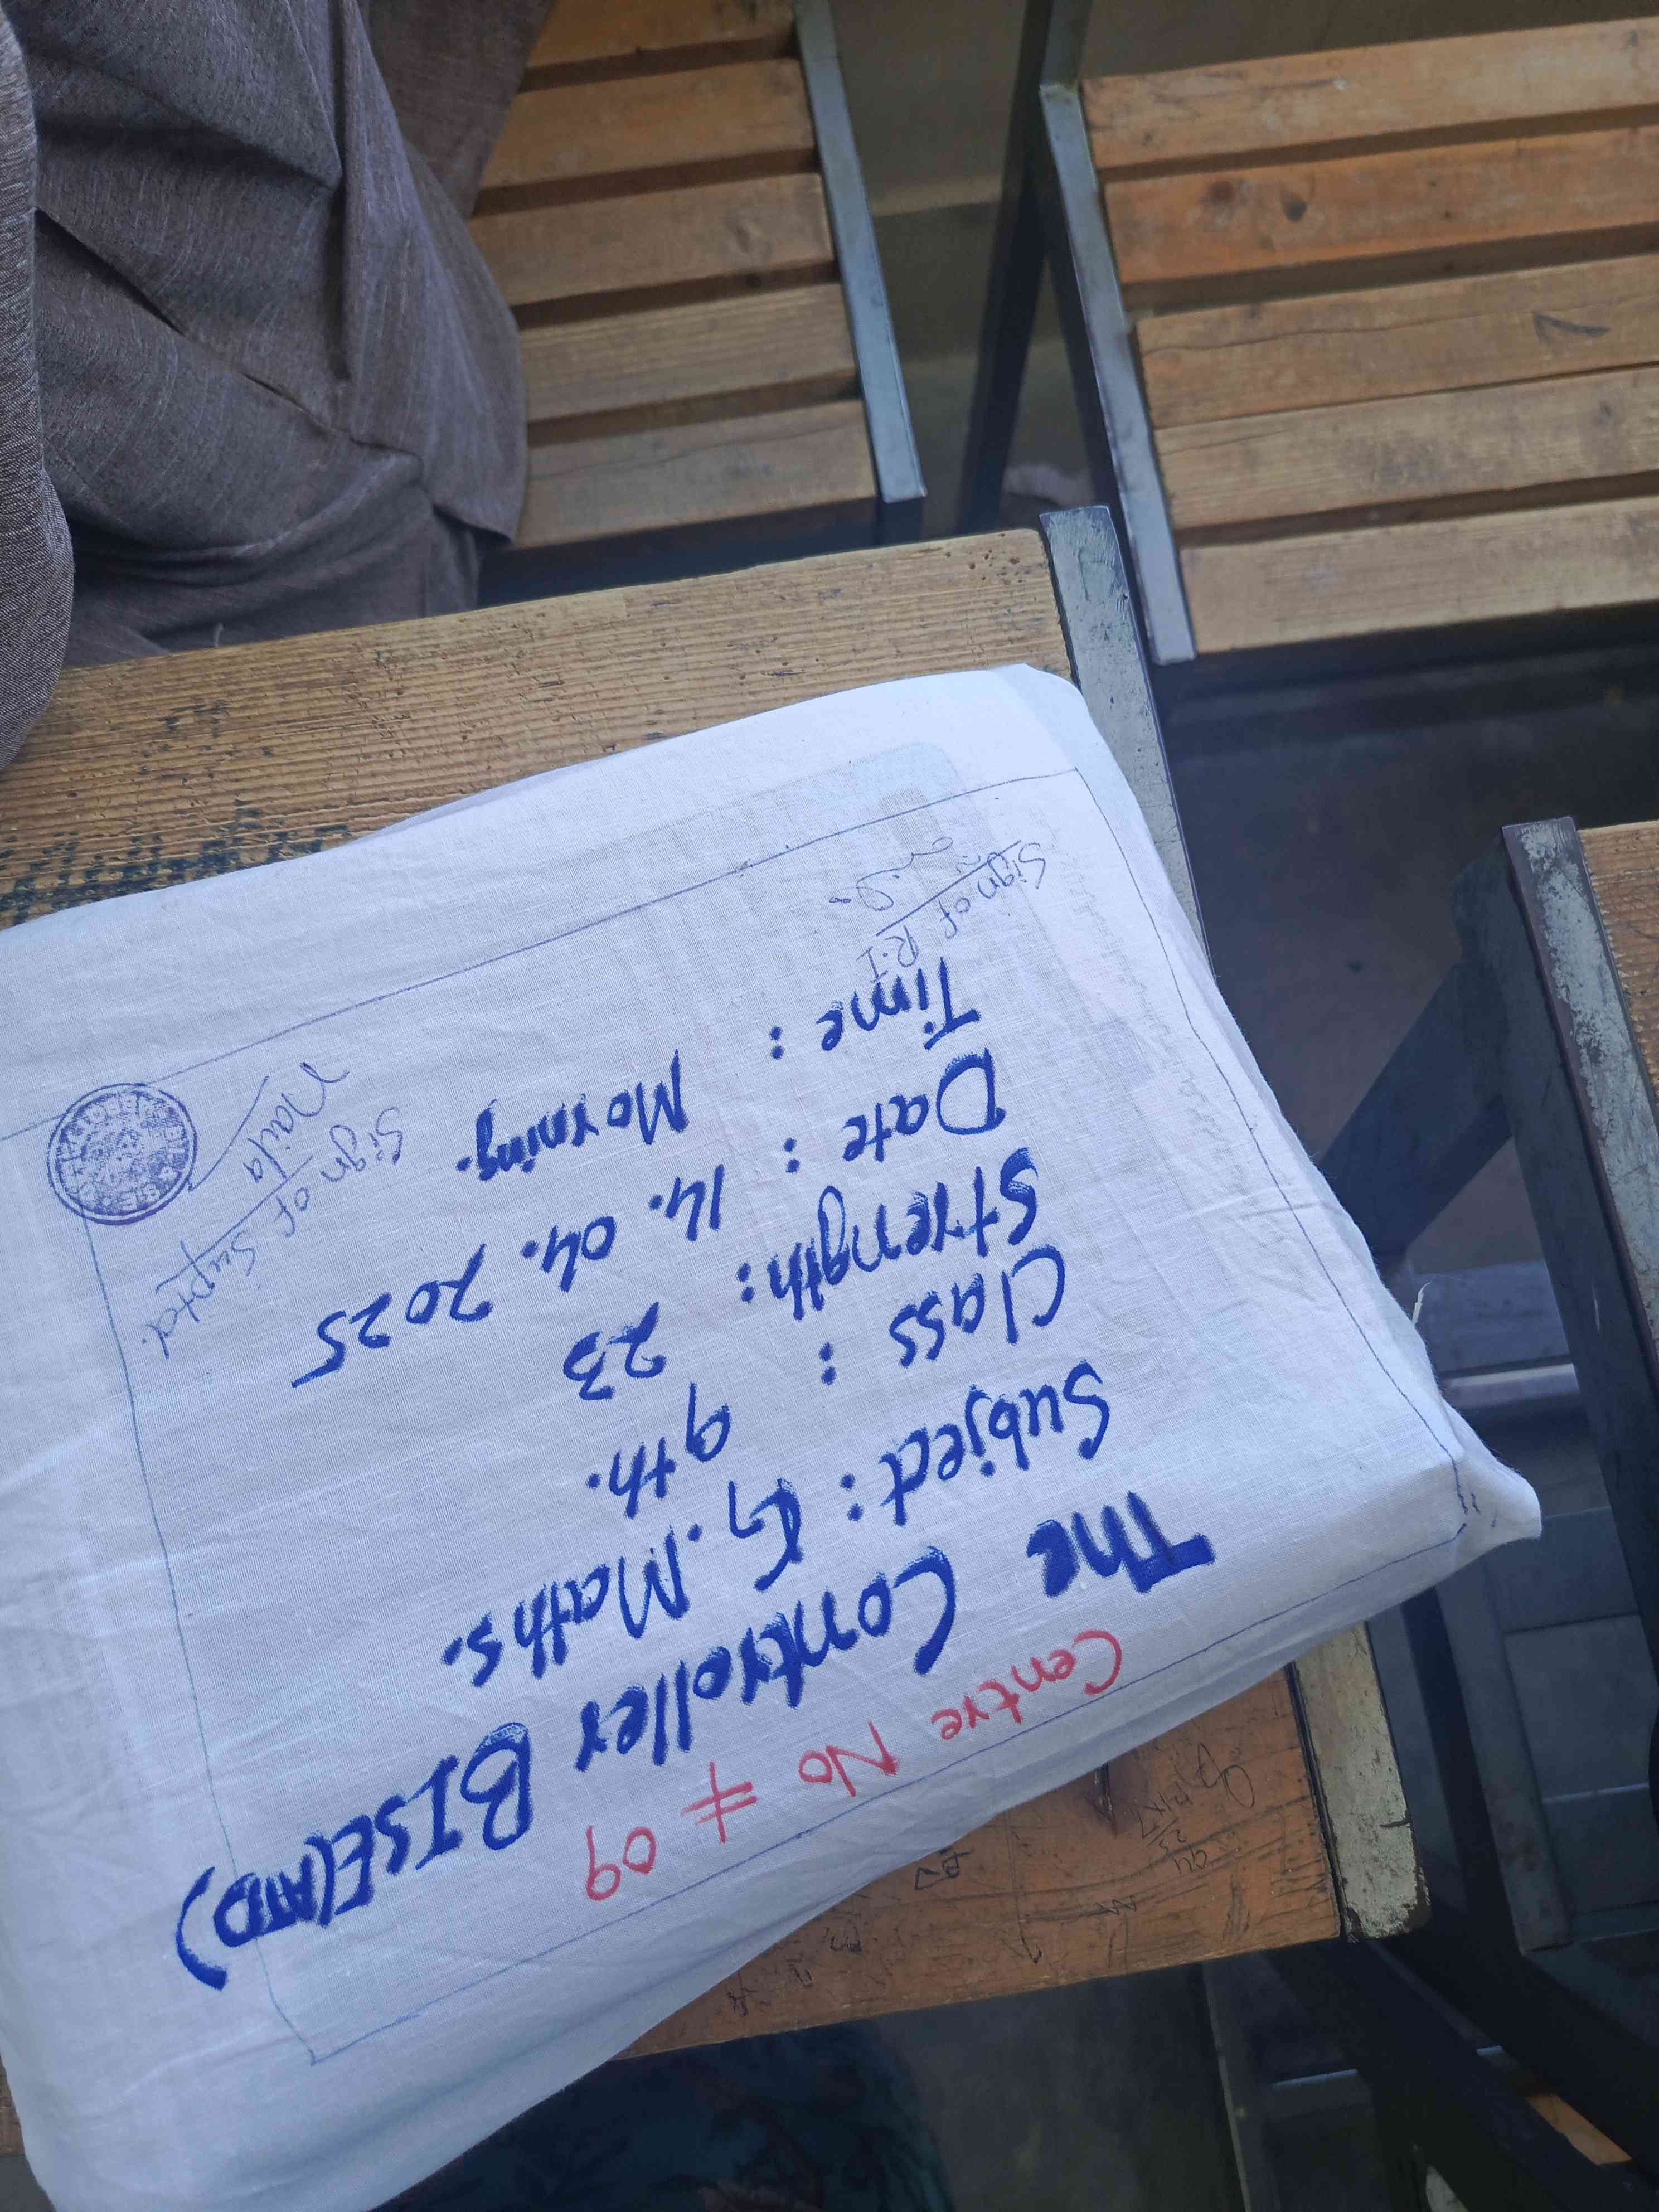 Centre No # 09
The Controller BISE(ATD)
Subject: G. Maths.
Class : 9th.
Strength: 23
Date : 14. 04. 2025
Time : Morning.
Sign of R.I
Sign of Suptd.
Naila